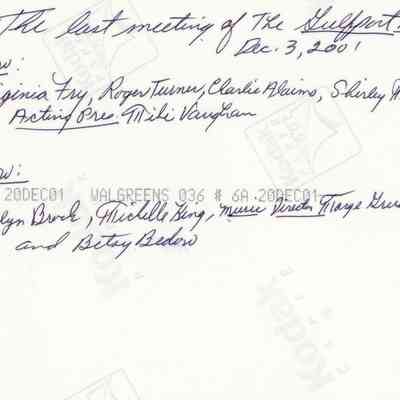 The last meeting of The Gulfport
Dec. 3, 2001
ow:
ginia Fry, Roger Turner, Charlie Alaimo, Shirley
Acting Pres. Mibi Vaughan
ow:
20DEC01 WALGREENS 036 # 6A 20DEC01
lyn Brock, Michelle King, Music Director Marge
and Betsy Bedow
Kodak
Kodak